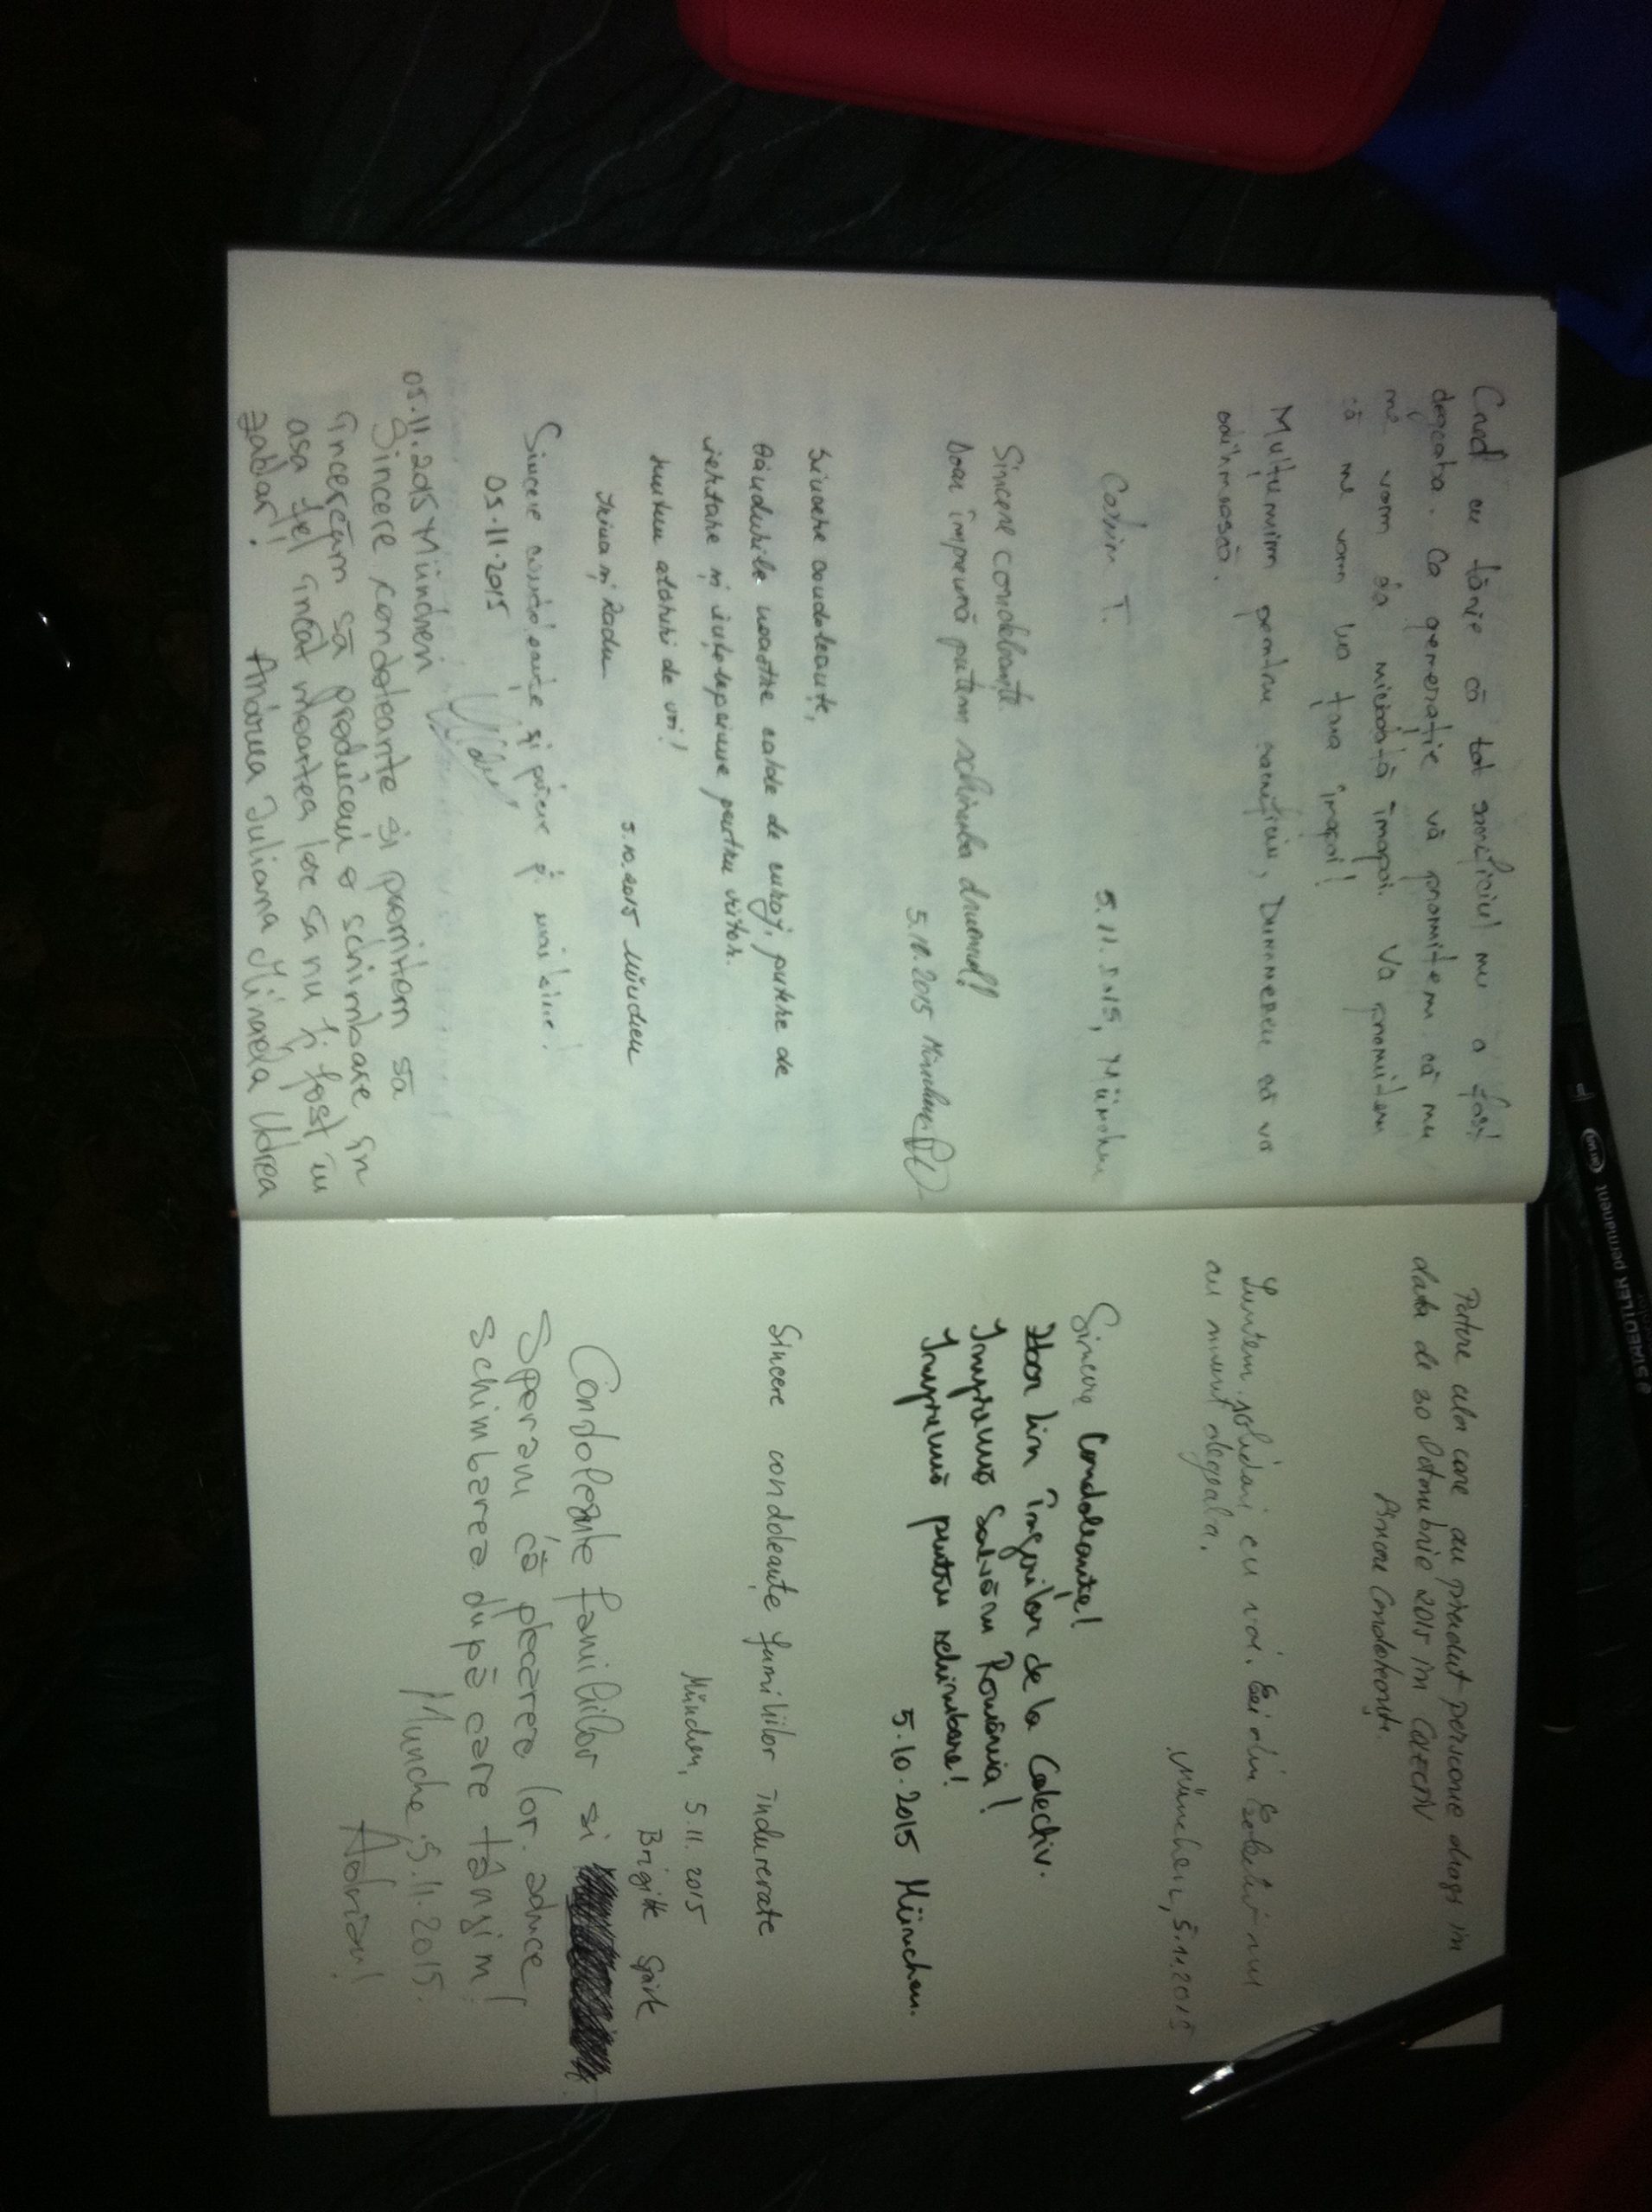 Cred cu tărie că tot sacrificiul nu a fost
degeaba. Ca generație vă promitem că nu
ne vom da niciodată înapoi. Vă promitem
că ne vom lua țara înapoi!
Mulțumim pentru sacrificiu, Dumnezeu să va
odihnească.
T.
5.11.2015, München
Sincere condoleanțe.
Doar împreună putem schimba drumul!
5.10.2015 München
Sincere condoleanțe,
Gândurile noastre calde de curaj, putere de
iertare și înțelepciune pentru viitor.
Suntem alături de voi!
Irina și Radu
5.10.2015 München
Sincere condoleanțe și mai bine!
05.11.2015
05.11.2015 München
Sincere condoleante si promitem sa
încercăm să producem o schimbare în
asa fel încat moartea lor sa nu fi fost în
zadar!
Andreea Iuliana Mirada Udrea
Putere celor care au pierdut persoane dragi in
data de 30 Octombrie 2015 în Colectiv
Sincere Condoleanțe.
Suntem solidari cu voi. Cei din Colectiv nu
au murit degeaba.
München, 5.11.2015
Sincere Condoleanțe!
lin îngerilor de la Colectiv.
Impreună Salvăm România!
Impreună pentru schimbare!
5.10.2015 München.
Sincere condoleanțe familiilor îndurerate
München, 5.11.2015
Brigitte
Condoleante familiilor si
Speram că plecarea lor aduce
schimbarea după care tânjim!
Munche, 5.11.2015.
Adrian!
STAEDTLER permanent